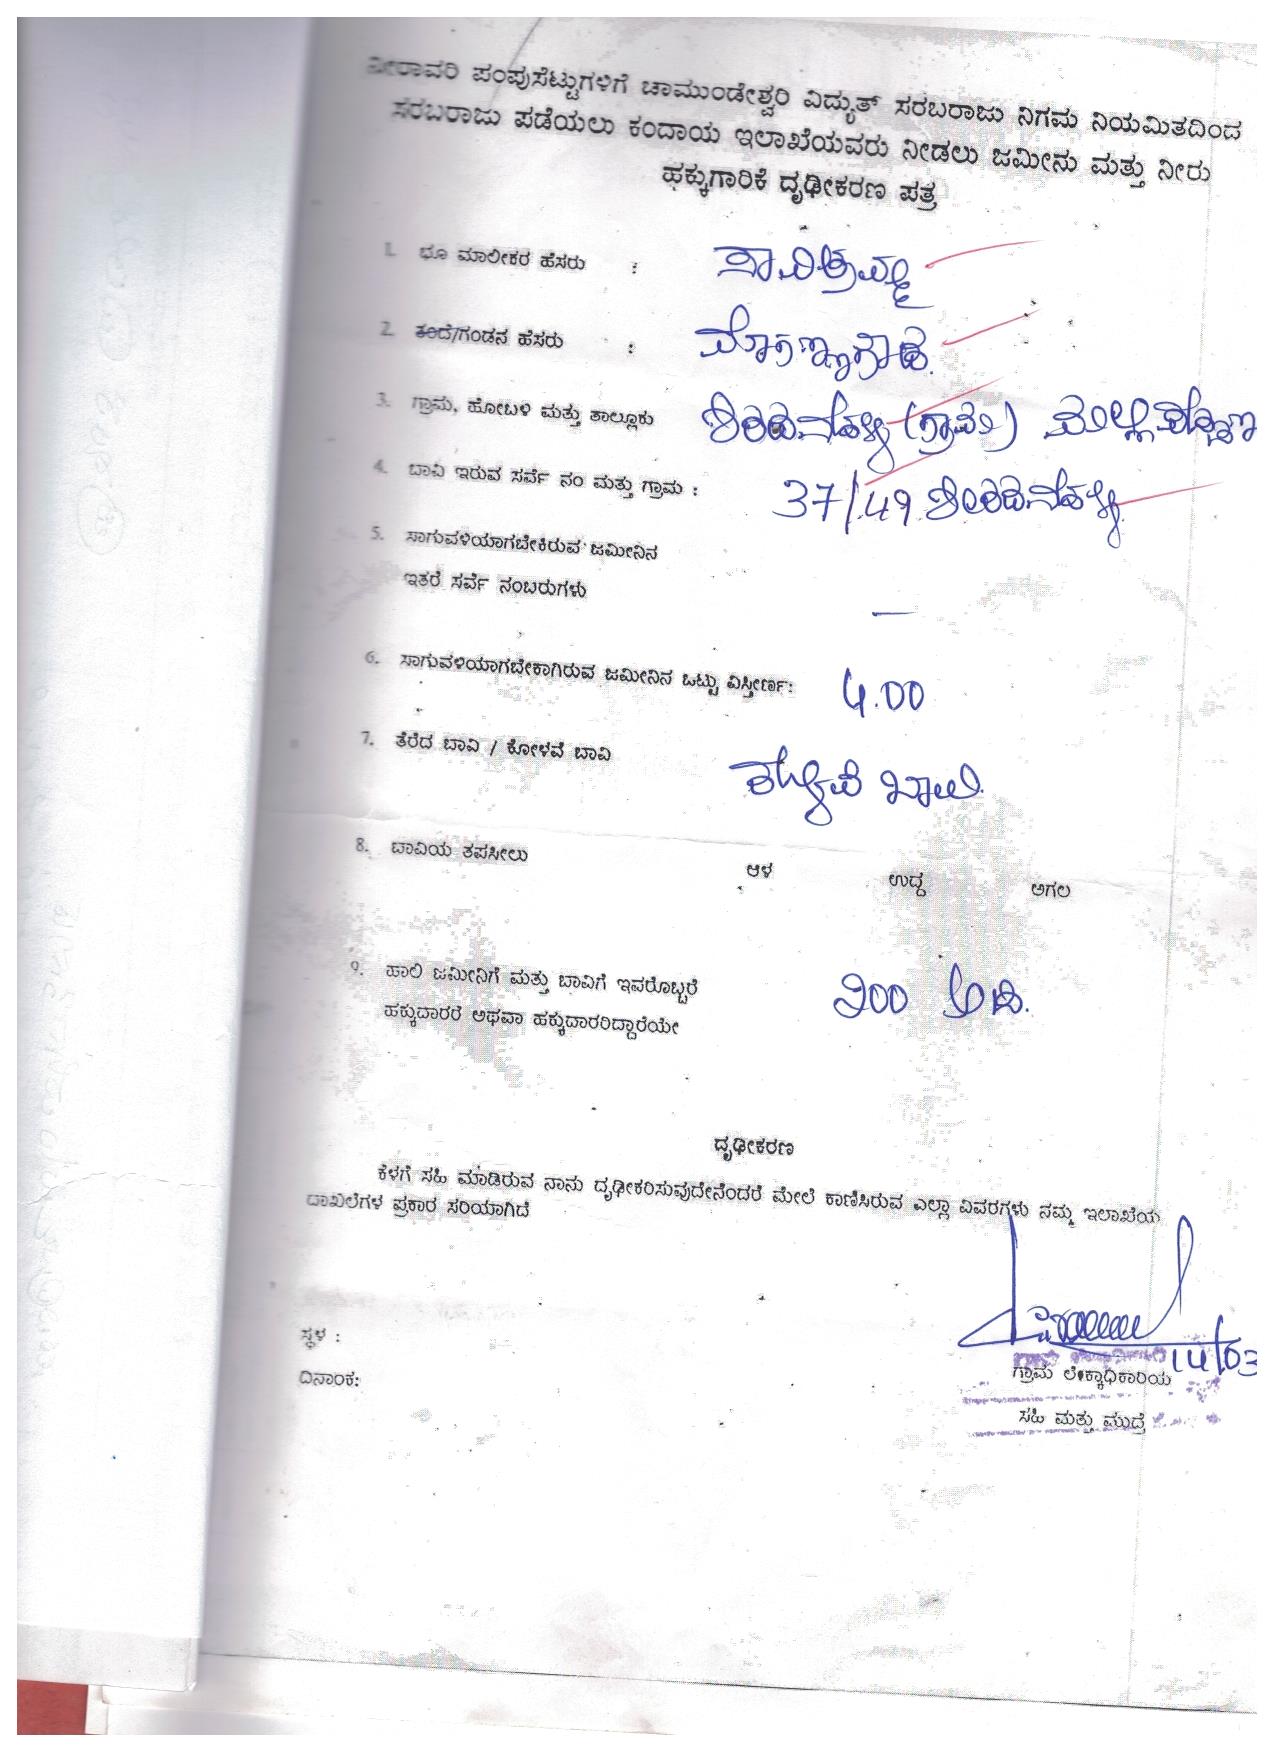 ನೀರಾವರಿ ಪಂಪುಸೆಟ್ಟುಗಳಿಗೆ ಚಾಮುಂಡೇಶ್ವರಿ ವಿದ್ಯುತ್ ಸರಬರಾಜು ನಿಗಮ ನಿಯಮಿತದಿಂದ
ಸರಬರಾಜು ಪಡೆಯಲು ಕಂದಾಯ ಇಲಾಖೆಯವರು ನೀಡಲು ಜಮೀನು ಮತ್ತು ನೀರು
ಹಕ್ಕುಗಾರಿಕೆ ದೃಢೀಕರಣ ಪತ್ರ
1. ಭೂ ಮಾಲೀಕರ ಹೆಸರು : ಸಾವಿತ್ರಮ್ಮ
2. ತಂದೆ/ಗಂಡನ ಹೆಸರು :
3. ಗ್ರಾಮ, ಹೋಬಳಿ ಮತ್ತು ತಾಲ್ಲೂಕು (ಗ್ರಾಮ)
4. ಬಾವಿ ಇರುವ ಸರ್ವೆ ನಂ ಮತ್ತು ಗ್ರಾಮ : 37/49
5. ಸಾಗುವಳಿಯಾಗಬೇಕಿರುವ ಜಮೀನಿನ
ಇತರೆ ಸರ್ವೆ ನಂಬರುಗಳು —
6. ಸಾಗುವಳಿಯಾಗಬೇಕಾಗಿರುವ ಜಮೀನಿನ ಒಟ್ಟು ವಿಸ್ತೀರ್ಣ: 4.00
7. ತೆರೆದ ಬಾವಿ / ಕೋಳವೆ ಬಾವಿ
8. ಬಾವಿಯ ತಪಸೀಲು ಆಳ ಉದ್ದ ಅಗಲ
9. ಹಾಲಿ ಜಮೀನಿಗೆ ಮತ್ತು ಬಾವಿಗೆ ಇವರೊಬ್ಬರೆ
ಹಕ್ಕುದಾರರೆ ಅಥವಾ ಹಕ್ಕುದಾರರಿದ್ದಾರೆಯೇ ಅಡಿ.
ದೃಢೀಕರಣ
ಕೆಳಗೆ ಸಹಿ ಮಾಡಿರುವ ನಾನು ದೃಢೀಕರಿಸುವುದೇನೆಂದರೆ ಮೇಲೆ ಕಾಣಿಸಿರುವ ಎಲ್ಲಾ ವಿವರಗಳು ನಮ್ಮ ಇಲಾಖೆಯ
ದಾಖಲೆಗಳ ಪ್ರಕಾರ ಸರಿಯಾಗಿದೆ
ಸ್ಥಳ :
14/03
ದಿನಾಂಕ:
ಗ್ರಾಮ ಲೇಕ್ಕಾಧಿಕಾರಿಯ
ಸಹಿ ಮತ್ತು ಮುದ್ರೆ